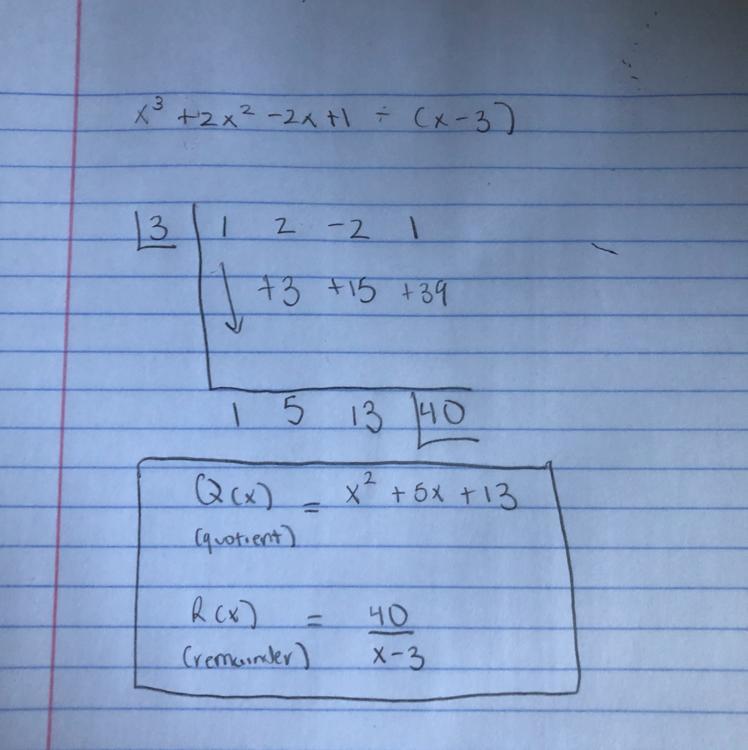 x³ + 2x² - 2x + 1 ÷ (x - 3)
3 1 2 -2 1
+3 +15 +39
1 5 13 40
Q(x) = x² + 5x + 13
(quotient)
R(x) = 40/x-3
(remainder)